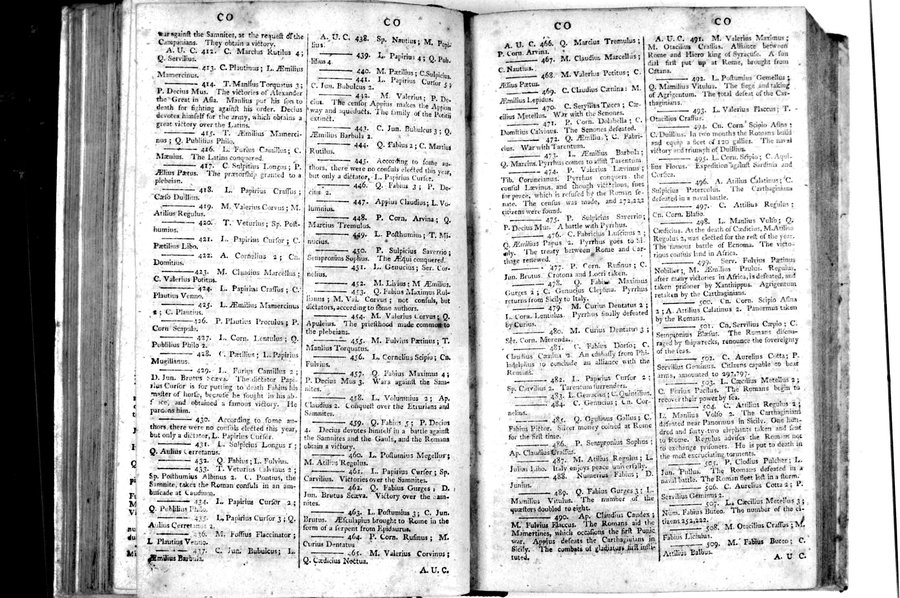 CO
war against the Samnites, at the request of the
Campanians. They obtain a victory.
A. U. C. 412. C. Marcius Rutilus 4;
Q. Servilius.
——— 413. C. Plautinus; L. Æmilius
Mamercinus.
——— 414. T. Manlius Torquatus 3;
P. Decius Mus. The victories of Alexander
the Great in Asia. Manlius put his son to
death for fighting against his order. Decius
devotes himself for the army, which obtains a
great victory over the Latins.
——— 415. T. Æmilius Mamerci-
nus; Q. Publilius Philo.
——— 416. L. Furius Camillus; C.
Mænius. The Latins conquered.
——— 417. C. Sulpitius Longus; P.
Ælius Pætus. The prætorship granted to a
plebeian.
——— 418. L. Papirius Crassus;
Cæso Duillius.
——— 419. M. Valerius Corvus; M.
Atilius Regulus.
——— 420. T. Veturius; Sp. Post-
humius.
——— 421. L. Papirius Cursor; C.
Pætilius Libo.
——— 422. A. Cornelius 2; Cn.
Domitius.
——— 423. M. Claudius Marcellus;
C. Valerius Potitus.
——— 424. L. Papirius Crassus; C.
Plautius Venno.
——— 425. L. Æmilius Mamercinus
2; C. Plautius.
——— 426. P. Plautius Proculus; P.
Corn Scapula.
——— 427. L. Corn. Lentulus; Q.
Publilius Philo 2.
——— 428. C. Pætilius; L. Papirius
Mugillanus.
——— 429. L. Furius Camillus 2;
D. Jun. Brutus Scæva. The dictator Papi-
rius Cursor is for putting to death Fabius his
master of horse, because he fought in his ab-
sence, and obtained a famous victory. He
pardons him.
——— 430. According to some au-
thors, there were no consuls elected this year,
but only a dictator, L. Papirius Cursor.
——— 431. L. Sulpicius Longus;
Q. Aulius Cerretanus.
——— 432. Q. Fabius; L. Fulvius.
——— 433. T. Veturius Calvinus 2;
Sp. Posthumius Albinus 2. C. Pontius, the
Samnite, takes the Roman consuls in an am-
buscade at Caudium.
——— 434. L. Papirius Cursor 2;
Q. Publilius Philo.
——— 435. L. Papirius Cursor 3; Q.
Aulius Cerretanus 2.
——— 436. M. Fossius Flaccinator;
L. Plautius Venno.
——— 437. C. Jun. Bubulcus; L.
Æmilius Barbula.
CO
A. U. C. 438. Sp. Nautius; M. Popi-
lius.
——— 439. L. Papirius 4; Q. Pub-
lilius 4.
——— 440. M. Pætilius; C. Sulpicius.
——— 441. L. Papirius Cursor 5;
C. Jun. Bubulcus 2.
——— 442. M. Valerius; P. De-
cius. The censor Appius makes the Appian
way and aqueducts. The family of the Potitii
extinct.
——— 443. C. Jun. Bubulcus 3; Q.
Æmilius Barbula 2.
——— 444. Q. Fabius 2; C. Martius
Rutilus.
——— 445. According to some au-
thors, there were no consuls elected this year,
but only a dictator, L. Papirius Cursor.
——— 446. Q. Fabius 3; P. De-
cius 2.
——— 447. Appius Claudius; L. Vo-
lumnius.
——— 448. P. Corn. Arvina; Q.
Martius Tremulus.
——— 449. L. Posthumius; T. Mi-
nucius.
——— 450. P. Sulpicius Saverrio;
Sempronius Sophus. The Æqui conquered.
——— 451. L. Genucius; Ser. Cor-
nelius.
——— 452. M. Livius; M Æmilius.
——— 453. Q. Fabius Maximus Rul-
lianus; M. Val. Corvus; not consuls, but
dictators, according to some authors.
——— 454. M. Valerius Corvus; Q.
Apuleius. The priesthood made common to
the plebeians.
——— 455. M. Fulvius Pætinus; T.
Manlius Torquatus.
——— 456. L. Cornelius Scipio; Cn.
Fulvius.
——— 457. Q. Fabius Maximus 4;
P. Decius Mus 3. Wars against the Sam-
nites.
——— 458. L. Volumnius 2; Ap.
Claudius 2. Conquest over the Etrurians and
Samnites.
——— 459. Q. Fabius 5; P. Decius
4. Decius devotes himself in a battle against
the Samnites and the Gauls, and the Romans
obtain a victory.
——— 460. L. Posthumius Megellus;
M. Atilius Regulus.
——— 461. L. Papirius Cursor; Sp.
Carvilius. Victories over the Samnites.
——— 462. Q. Fabius Gurges; D.
Jun. Brutus Scæva. Victory over the Sam-
nites.
——— 463. L. Posthumius 3; C. Jun.
Brutus. Æsculapius brought to Rome in the
form of a serpent from Epidaurus.
——— 464. P. Corn. Rufinus; M.
Curius Dentatus
——— 465. M. Valerius Corvinus;
Q. Cædicius Noctua.
A. U. C.
CO
A. U. C. 466. Q. Marcius Tremulus;
P. Corn. Arvina.
——— 467. M. Claudius Marcellus;
C. Nautius.
——— 468. M. Valerius Potitus; C.
Ælius Pætus.
——— 469. C. Claudius Cænina; M.
Æmilius Lepidus.
——— 470. C. Servilius Tucca; Cæ-
cilius Metellus. War with the Senones.
——— 471. P. Corn. Dolabella; C.
Domitius Calvinus. The Senones defeated.
——— 472. Q. Æmilius; C. Fabri-
cius. War with Tarentum.
——— 473. L. Æmilius Barbula;
Q. Marcius. Pyrrhus comes to assist Tarentum.
——— 474. P. Valerius Lævinus;
Tib. Coruncianus. Pyrrhus conquers the
consul Lævinus, and though victorious, sues
for peace, which is refused by the Roman se-
nate. The census was made, and 272,222
citizens were found.
——— 475. P. Sulpicius Saverrio;
P. Decius Mus. A battle with Pyrrhus.
——— 476. C. Fabricius Luscinus 2;
Q. Æmilius Papus 2. Pyrrhus goes to Si-
cily. The treaty between Rome and Car-
thage renewed.
——— 477. P. Corn. Rufinus; C.
Jun. Brutus. Crotona and Locri taken.
——— 478. Q. Fabius Maximus
Gurges 2; C. Genucius Clepsina. Pyrrhus
returns from Sicily to Italy.
——— 479. M. Curius Dentatus 2;
L. Corn. Lentulus. Pyrrhus finally defeated
by Curius.
——— 480. M. Curius Dentatus 3;
Ser. Corn. Merenda.
——— 481. C. Fabius Dorso; C.
Claudius Canina 2. An embassy from Phi-
ladelphus to conclude an alliance with the
Romans.
——— 482. L. Papirius Cursor 2;
Sp. Carvilius 2. Tarentum surrenders.
——— 483. L. Genucius; C. Quintilius.
——— 484. C. Genucius; Cn. Cor-
nelius.
——— 485. Q. Ogulinus Gallus; C.
Fabius Pictor. Silver money coined at Rome
for the first time.
——— 486. P. Sempronius Sophus;
Ap. Claudius Crassus.
——— 487. M. Atilius Regulus; L.
Julius Libo. Italy enjoys peace universally.
——— 488. Numerius Fabius; D.
Junius.
——— 489. Q. Fabius Gurges 3; L.
Mamilius Vitulus. The number of the
quæstors doubled to eight.
——— 490. Ap. Claudius Caudex;
M. Fulvius Flaccus. The Romans aid the
Mamertines, which occasions the first Punic
war. Appius defeats the Carthaginians in
Sicily. The combats of gladiators first insti-
tuted.
CO
A. U. C. 491. M. Valerius Maximus;
M. Otacilius Crassus. Alliance between
Rome and Hiero king of Syracuse. A sun
dial first put up at Rome, brought from
Catana.
——— 492. L. Postumius Gemellus;
Q. Mamilius Vitulus. The siege and taking
of Agrigentum. The total defeat of the Car-
thaginians.
——— 493. L. Valerius Flaccus; T.
Otacilius Crassus.
——— 494. Cn. Corn. Scipio Asina;
C. Duillius. In two months the Romans build
and equip a fleet of 120 gallies. The naval
victory and triumph of Duillius.
——— 495. L. Corn. Scipio; C. Aqui-
lius Florus. Expedition against Sardinia and
Corsica.
——— 496. A. Atilius Calatinus; C.
Sulpicius Paterculus. The Carthaginians
defeated in a naval battle.
——— 497. C. Attilius Regulus;
Cn. Corn. Blasio.
——— 498. L. Manlius Vulso; Q.
Cædicius. At the death of Cædicius, M. Atilius
Regulus 2, was elected for the rest of the year.
The famous battle of Ecnoma. The victo-
rious consuls land in Africa.
——— 499. Serv. Fulvius Pætinus
Nobilior; M. Æmilius Paulus. Regulus,
after many victories in Africa, is defeated, and
taken prisoner by Xanthippus. Agrigentum
retaken by the Carthaginians.
——— 500. Cn. Corn. Scipio Asina
2; A. Atilius Calatinus 2. Panormus taken
by the Romans.
——— 501. Cn. Servilius Cæpio; C.
Sempronius Blæsus. The Romans discou-
raged by shipwrecks, renounce the sovereignty
of the seas.
——— 502. C. Aurelius Cotta; P.
Servilius Geminus. Citizens capable to bear
arms, amounted to 297,797.
——— 503. L. Cæcilius Metellus 2;
C. Furius Pacilus. The Romans begin to
recover their power by sea.
——— 504. C. Atilius Regulus 2;
L. Manlius Volso 2. The Carthaginians
defeated near Panormus in Sicily. One hun-
dred and forty-two elephants taken and sent
to Rome. Regulus advises the Romans not
to exchange prisoners. He is put to death in
the most excruciating torments.
——— 505. P. Clodius Pulcher; L.
Jun. Pullus. The Romans defeated in a
naval battle. The Roman fleet lost in a storm.
——— 506. C. Aurelius Cotta 2; P.
Servilius Geminus 2.
——— 507. L. Cæcilius Metellus 3;
Num. Fabius Buteo. The number of the ci-
tizens 252,222.
——— 508. M. Otacilius Crassus; M.
Fabius Licinus.
——— 509. M. Fabius Buteo; C.
Attilius Balbus.
A. U. C.